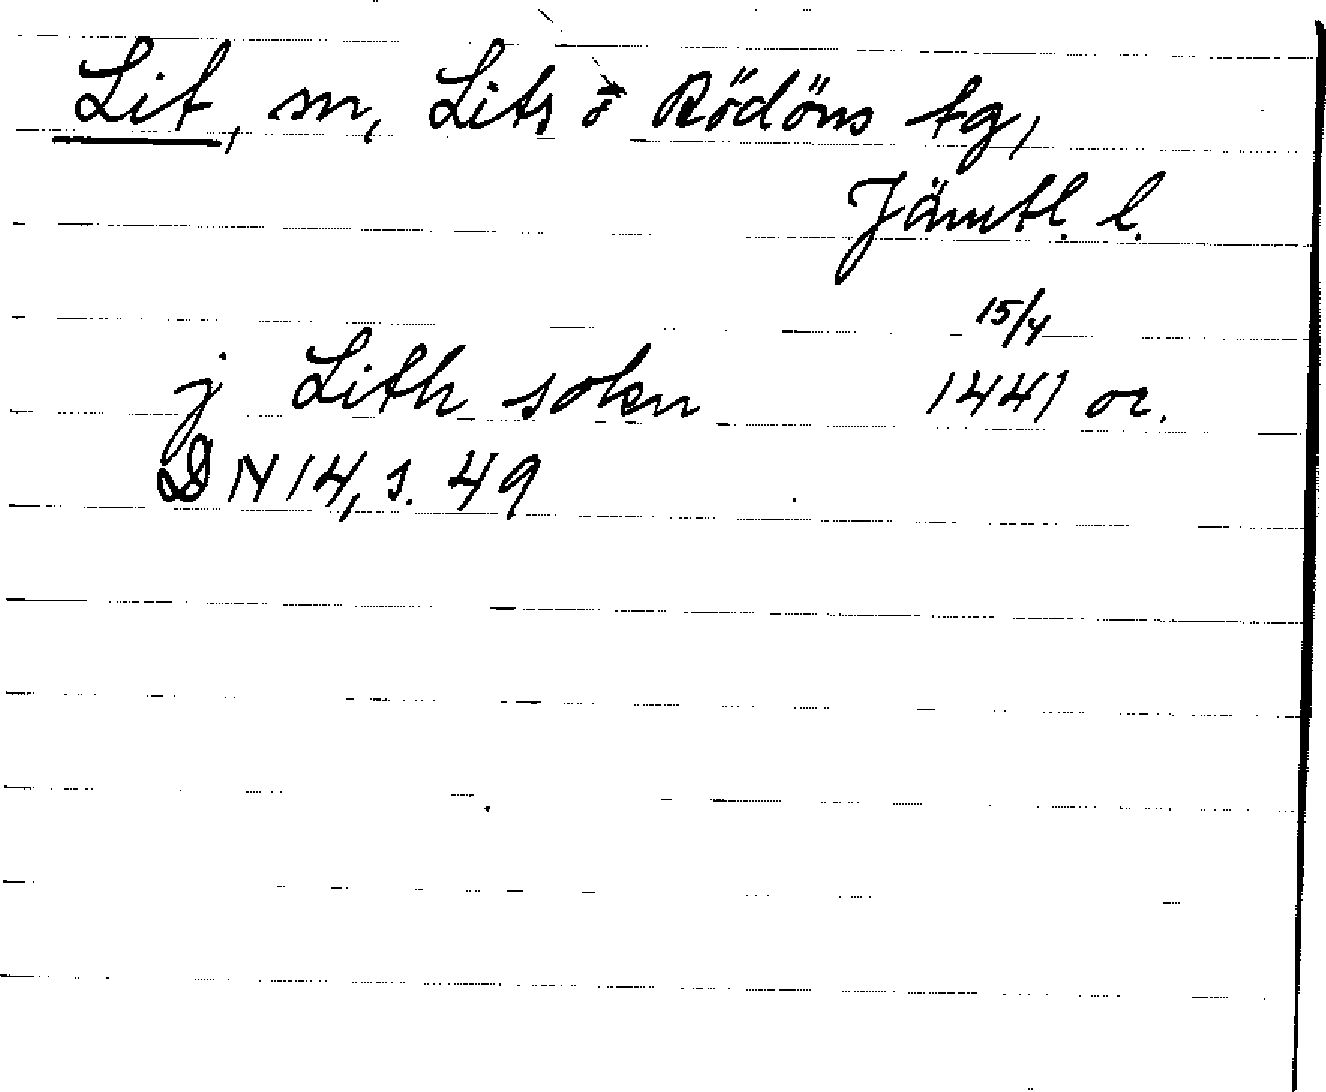 Lit, sn, Lits o Rödöns tg,
Jämtl. l.
15/4
j Lith sokn 1441 or.
DN 14, s. 49